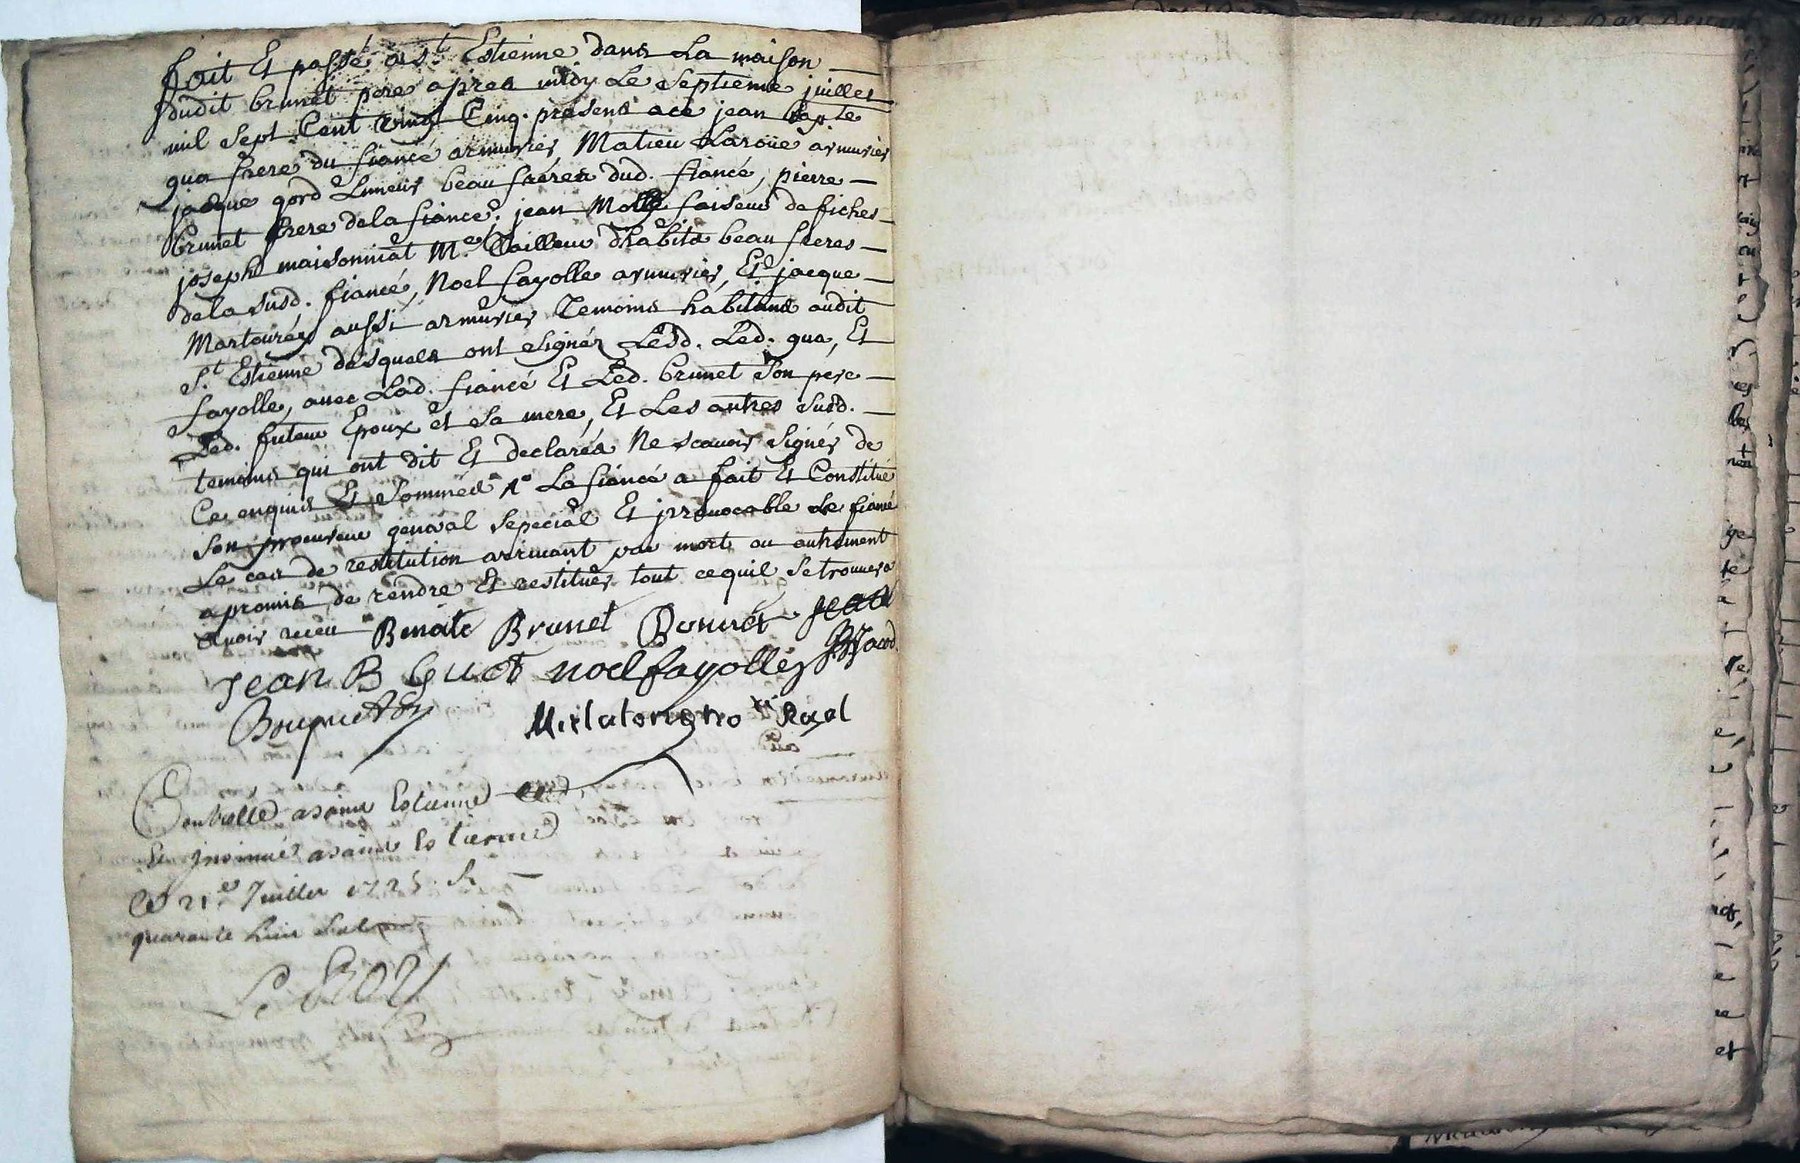 fait Et passé a St. Estienne dans La maison
dudit brunet pere apres midy Le Septieme juillet
mil sept Cent vingt Cinq. presens ace jean bapte
qua frere du fiancé armurier, Matieu Laroüe armurier
jacque gord Limeur beau freres dud. fiancé, pierre
brunet frere de la fiancé. jean Molle faiseur de fiches
joseph maisonniat Me. Tailleur d'habits beau freres
de la susd. fiancé, Noel fayolle armurier, Et jacque
Martourey aussi armurier Temoins habitans audit
St. Estienne desquels ont esignér Lesd. Led. qua, Et
fayolle, avec Lad. fiancé Et Led. brunet Son pere
Led. futeur Epoux et Sa mere, Et Les autres Susd.
temoins qui ont dit Et declarés Ne scavoir Signér de
Ce enquis Et Sommés La fiancé a fait Et Constitué
Son procureur general Sepecial Et jrrevocable Le fiancé
Le cas de restitution arrivant par mort ou autrement
a promis de rendre Et restituér tout cequil Se trouvera
avoir receu Benoite Brunet Brunet Jean
Jean B Guat noel fayolle
Controllé a saint Estienne
Et jnsinué a saint Estienne
Ce 21e Juillet 1725
quarante huit Sols